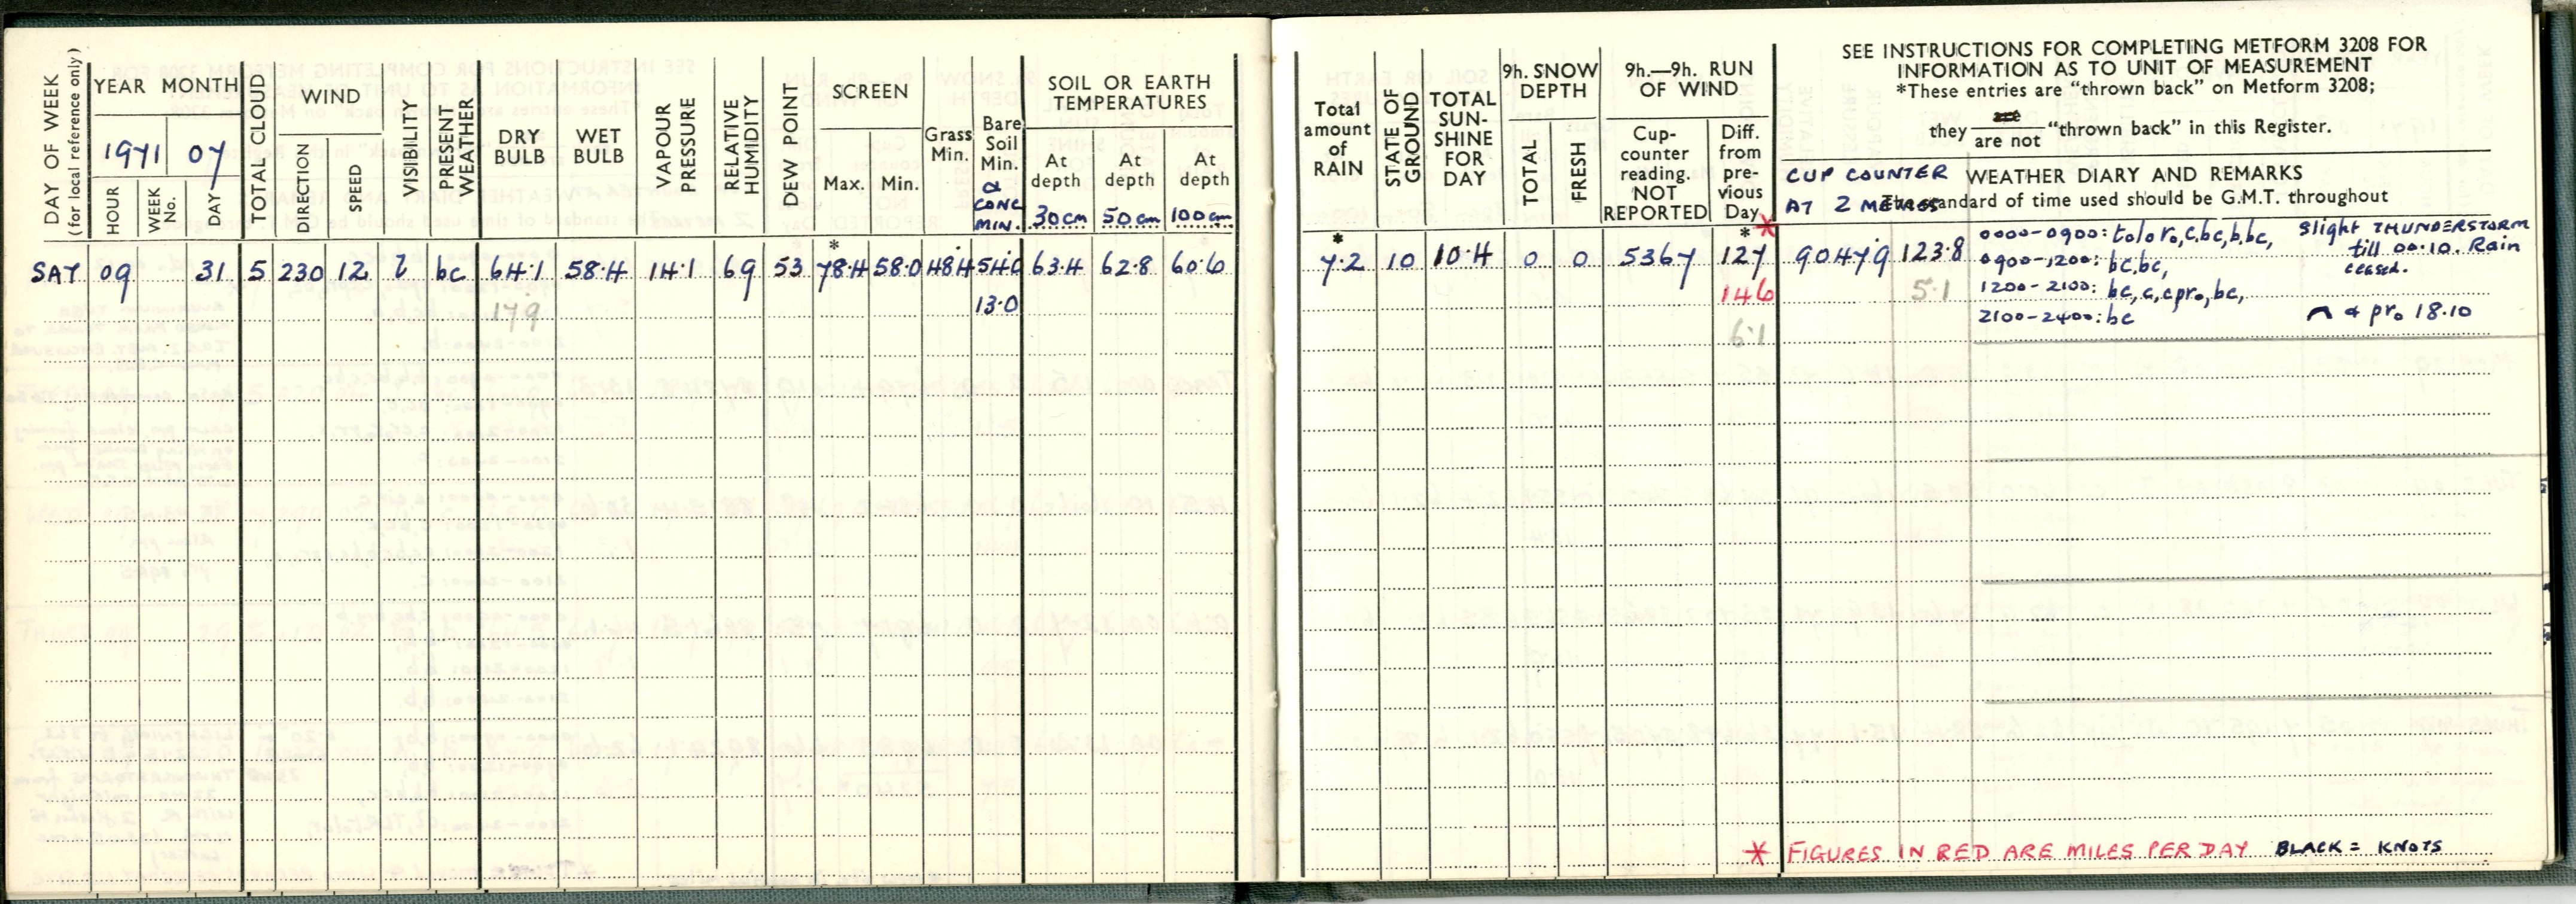 DAY OF WEEK
(for local reference only)
YEAR MONTH
1971 07
HOUR
WEEK No.
DAY
TOTAL CLOUD
WIND
DIRECTION
SPEED
VISIBILITY
PRESENT WEATHER
DRY BULB
WET BULB
VAPOUR PRESSURE
RELATIVE HUMIDITY
DEW POINT
SCREEN
Max. Min.
Grass Min.
Bare Soil Min.
& CONC MIN.
SOIL OR EARTH TEMPERATURES
At depth 30 cm
At depth 50 cm
At depth 100 cm
SAT 09 31 5 230 12 7 bc 64.1 58.4 14.1 69 53 *78.4 58.0 48.4 54.0 63.4 62.8 60.6
17.9
13.0
Total amount of RAIN
STATE OF GROUND
TOTAL SUN-SHINE FOR DAY
9h. SNOW DEPTH
TOTAL
FRESH
9h.—9h. RUN OF WIND
Cup-counter reading. NOT REPORTED
Diff. from pre-vious Day
*
SEE INSTRUCTIONS FOR COMPLETING METFORM 3208 FOR
INFORMATION AS TO UNIT OF MEASUREMENT
*These entries are "thrown back" on Metform 3208;
they are / are not "thrown back" in this Register.
CUP COUNTER
AT 2 METRES
WEATHER DIARY AND REMARKS
The standard of time used should be G.M.T. throughout
*7.2 10 10.4 0 0 5367 *127 90479 123.8
146
5.1
6.1
0000-0900: toloro, c, bc, b, bc,
0900-1200: bc, bc,
1200-2100: bc, c, cpro, bc,
2100-2400: bc
slight THUNDERSTORM
till 00.10. Rain
ceased.
& pro 18.10
* FIGURES IN RED ARE MILES PER DAY BLACK = KNOTS